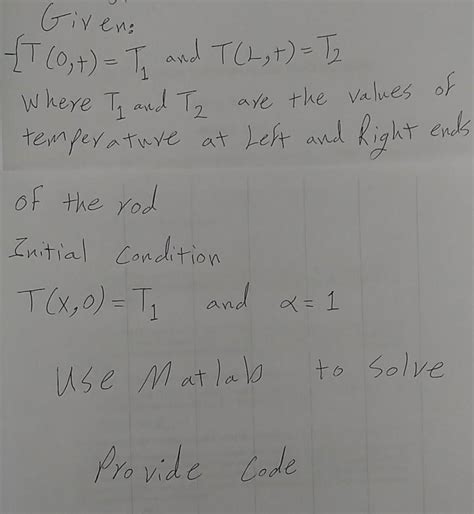 Given:
{T(0,t) = T₁ and T(L,t) = T₂
where T₁ and T₂ are the values of
temperature at Left and Right ends
of the rod
Initial Condition
T(x,0) = T₁ and α = 1
Use Matlab to solve
Provide Code